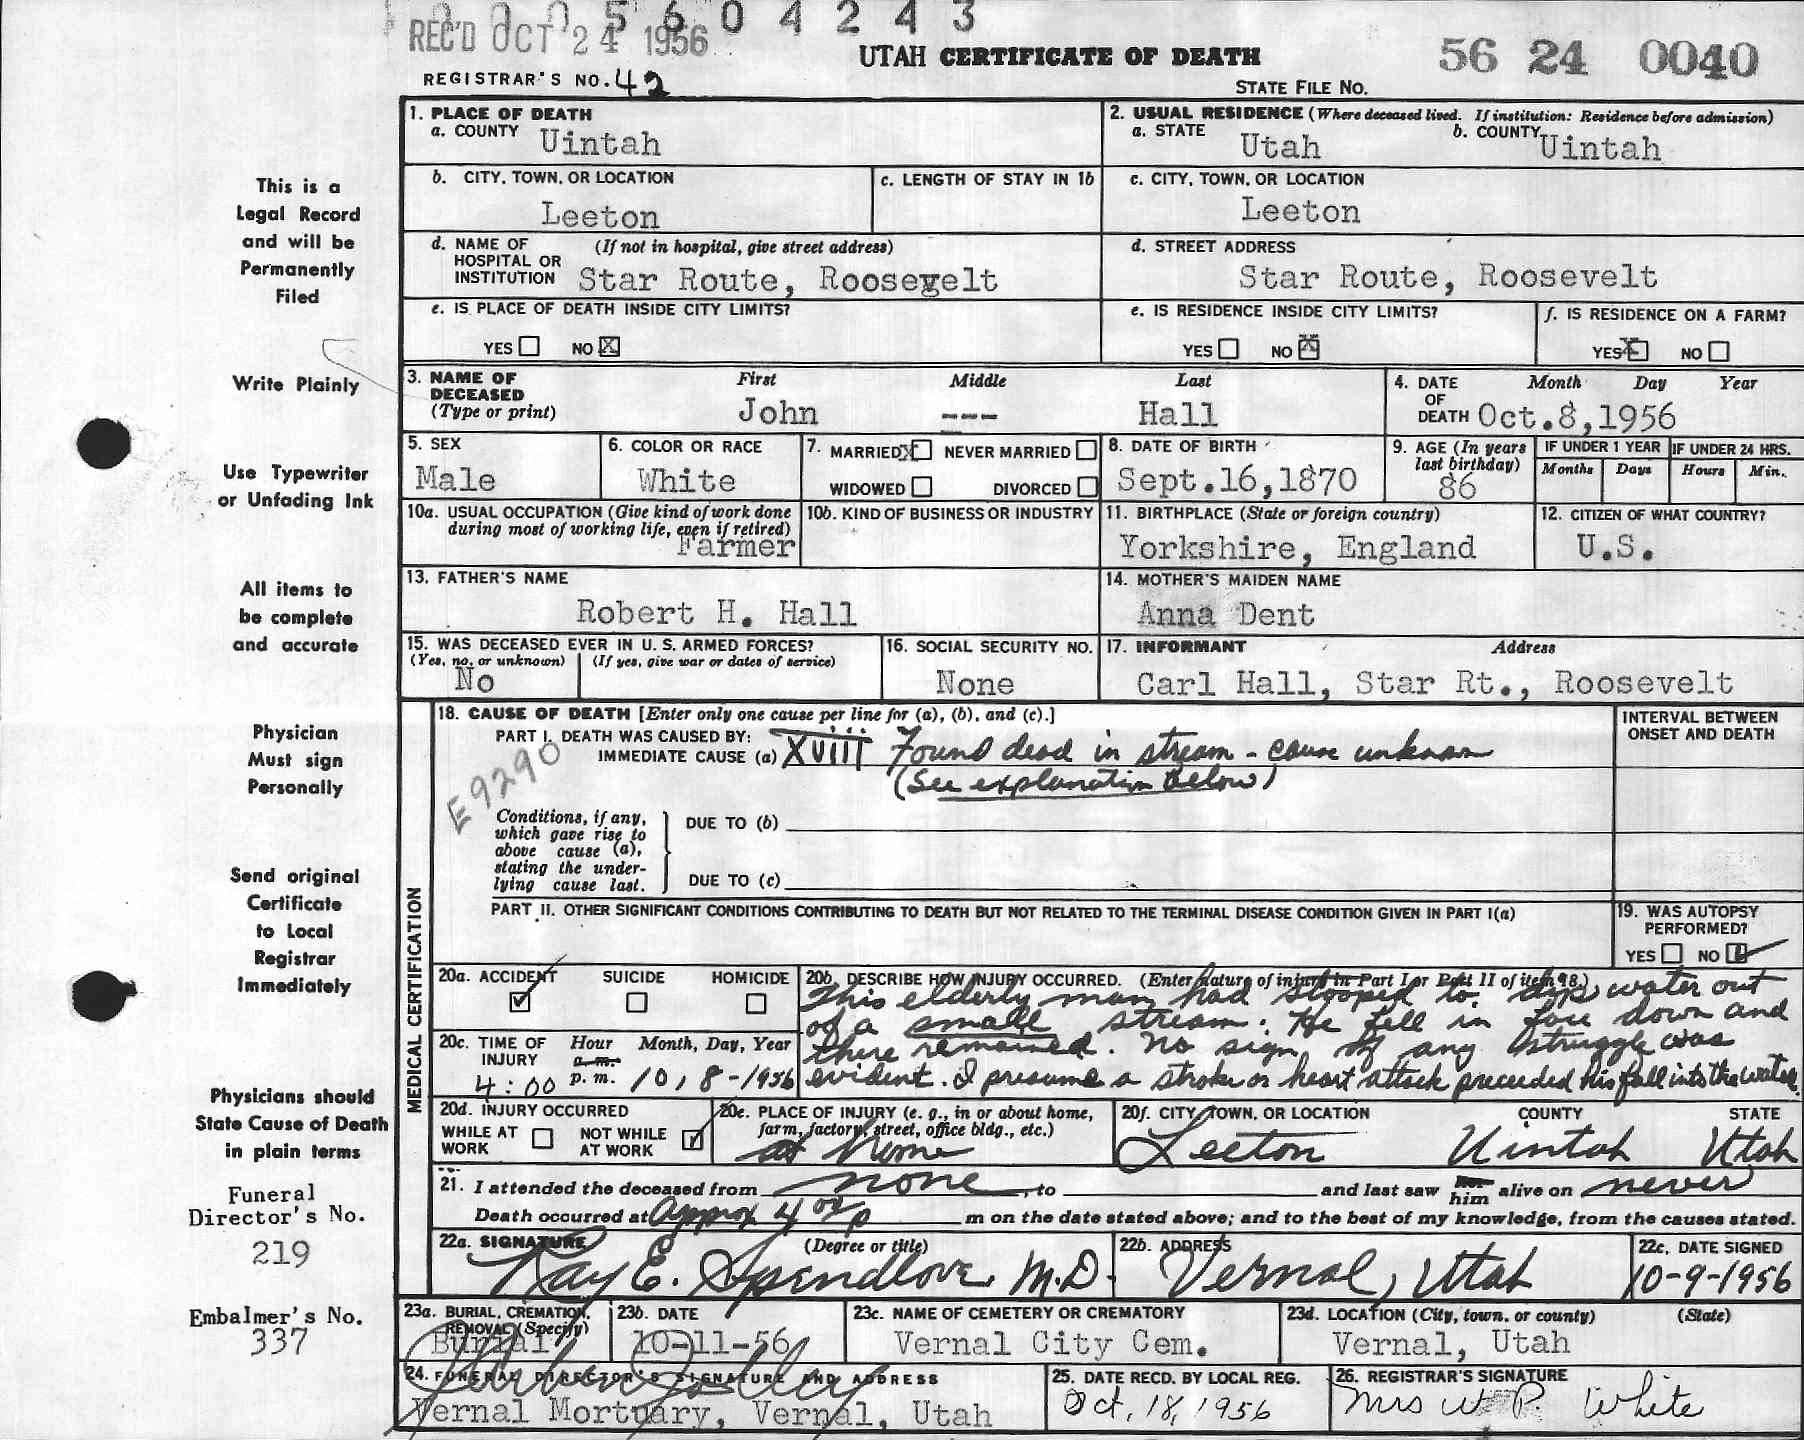 0 0 0 5 6 0 4 2 4 3
REC'D OCT 24 1956
UTAH CERTIFICATE OF DEATH
56 24 0040
REGISTRAR'S NO. 42
STATE FILE NO.
This is a
Legal Record
and will be
Permanently
Filed
Write Plainly
Use Typewriter
or Unfading Ink
All items to
be complete
and accurate
Physician
Must sign
Personally
Send original
Certificate
to Local
Registrar
Immediately
Physicians should
State Cause of Death
in plain terms
Funeral
Director's No.
219
Embalmer's No.
337
1. PLACE OF DEATH
a. COUNTY Uintah
2. USUAL RESIDENCE (Where deceased lived. If institution: Residence before admission)
a. STATE Utah b. COUNTY Uintah
b. CITY, TOWN, OR LOCATION
Leeton
c. LENGTH OF STAY IN 1b
c. CITY, TOWN, OR LOCATION
Leeton
d. NAME OF HOSPITAL OR INSTITUTION (If not in hospital, give street address)
Star Route, Roosevelt
d. STREET ADDRESS
Star Route, Roosevelt
e. IS PLACE OF DEATH INSIDE CITY LIMITS?
YES NO X
e. IS RESIDENCE INSIDE CITY LIMITS?
YES NO X
f. IS RESIDENCE ON A FARM?
YES X NO
3. NAME OF DECEASED (Type or print)
First Middle Last
John --- Hall
4. DATE OF DEATH Month Day Year
Oct.8,1956
5. SEX
Male
6. COLOR OR RACE
White
7. MARRIED X NEVER MARRIED
WIDOWED DIVORCED
8. DATE OF BIRTH
Sept.16,1870
9. AGE (In years last birthday)
86
IF UNDER 1 YEAR
Months Days
IF UNDER 24 HRS.
Hours Min.
10a. USUAL OCCUPATION (Give kind of work done during most of working life, even if retired)
Farmer
10b. KIND OF BUSINESS OR INDUSTRY
11. BIRTHPLACE (State or foreign country)
Yorkshire, England
12. CITIZEN OF WHAT COUNTRY?
U.S.
13. FATHER'S NAME
Robert H. Hall
14. MOTHER'S MAIDEN NAME
Anna Dent
15. WAS DECEASED EVER IN U. S. ARMED FORCES?
(Yes, no, or unknown) (If yes, give war or dates of service)
No
16. SOCIAL SECURITY NO.
None
17. INFORMANT Address
Carl Hall, Star Rt., Roosevelt
MEDICAL CERTIFICATION
18. CAUSE OF DEATH [Enter only one cause per line for (a), (b), and (c).]
INTERVAL BETWEEN ONSET AND DEATH
PART I. DEATH WAS CAUSED BY:
IMMEDIATE CAUSE (a) XViii Found dead in stream - cause unknown
(See explanation below)
E9290
Conditions, if any, which gave rise to above cause (a), stating the underlying cause last.
DUE TO (b)
DUE TO (c)
PART II. OTHER SIGNIFICANT CONDITIONS CONTRIBUTING TO DEATH BUT NOT RELATED TO THE TERMINAL DISEASE CONDITION GIVEN IN PART I(a)
19. WAS AUTOPSY PERFORMED?
YES NO
20a. ACCIDENT SUICIDE HOMICIDE
20b. DESCRIBE HOW INJURY OCCURRED. (Enter nature of injury in Part I or Part II of item 18.)
This elderly man had stooped to dip water out
of a small stream. He fell in face down and
there remained. No sign of any struggle was
evident. I presume a stroke or heart attack preceeded his fall into the water.
20c. TIME OF INJURY Hour Month, Day, Year
a.m.
4:00 p.m. 10, 8-1956
20d. INJURY OCCURRED
WHILE AT WORK NOT WHILE AT WORK
20e. PLACE OF INJURY (e. g., in or about home, farm, factory, street, office bldg., etc.)
at home
20f. CITY, TOWN, OR LOCATION COUNTY STATE
Leeton Uintah Utah
21. I attended the deceased from none, to and last saw her him alive on never
Death occurred at Approx 4 00/p m on the date stated above; and to the best of my knowledge, from the causes stated.
22a. SIGNATURE (Degree or title)
Ray E. Spendlove, M.D.
22b. ADDRESS
Vernal, Utah
22c. DATE SIGNED
10-9-1956
23a. BURIAL, CREMATION, REMOVAL (Specify)
Burial
23b. DATE
10-11-56
23c. NAME OF CEMETERY OR CREMATORY
Vernal City Cem.
23d. LOCATION (City, town, or county) (State)
Vernal, Utah
24. FUNERAL DIRECTOR'S SIGNATURE AND ADDRESS
Vernal Mortuary, Vernal, Utah
25. DATE RECD. BY LOCAL REG.
Oct, 18, 1956
26. REGISTRAR'S SIGNATURE
Mrs W. P. White